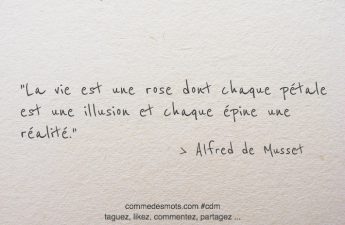 "La vie est une rose dont chaque pétale
est une illusion et chaque épine une
réalité."
> Alfred de Musset
commedesmots.com #cdm
taguez, likez, commentez, partagez ...